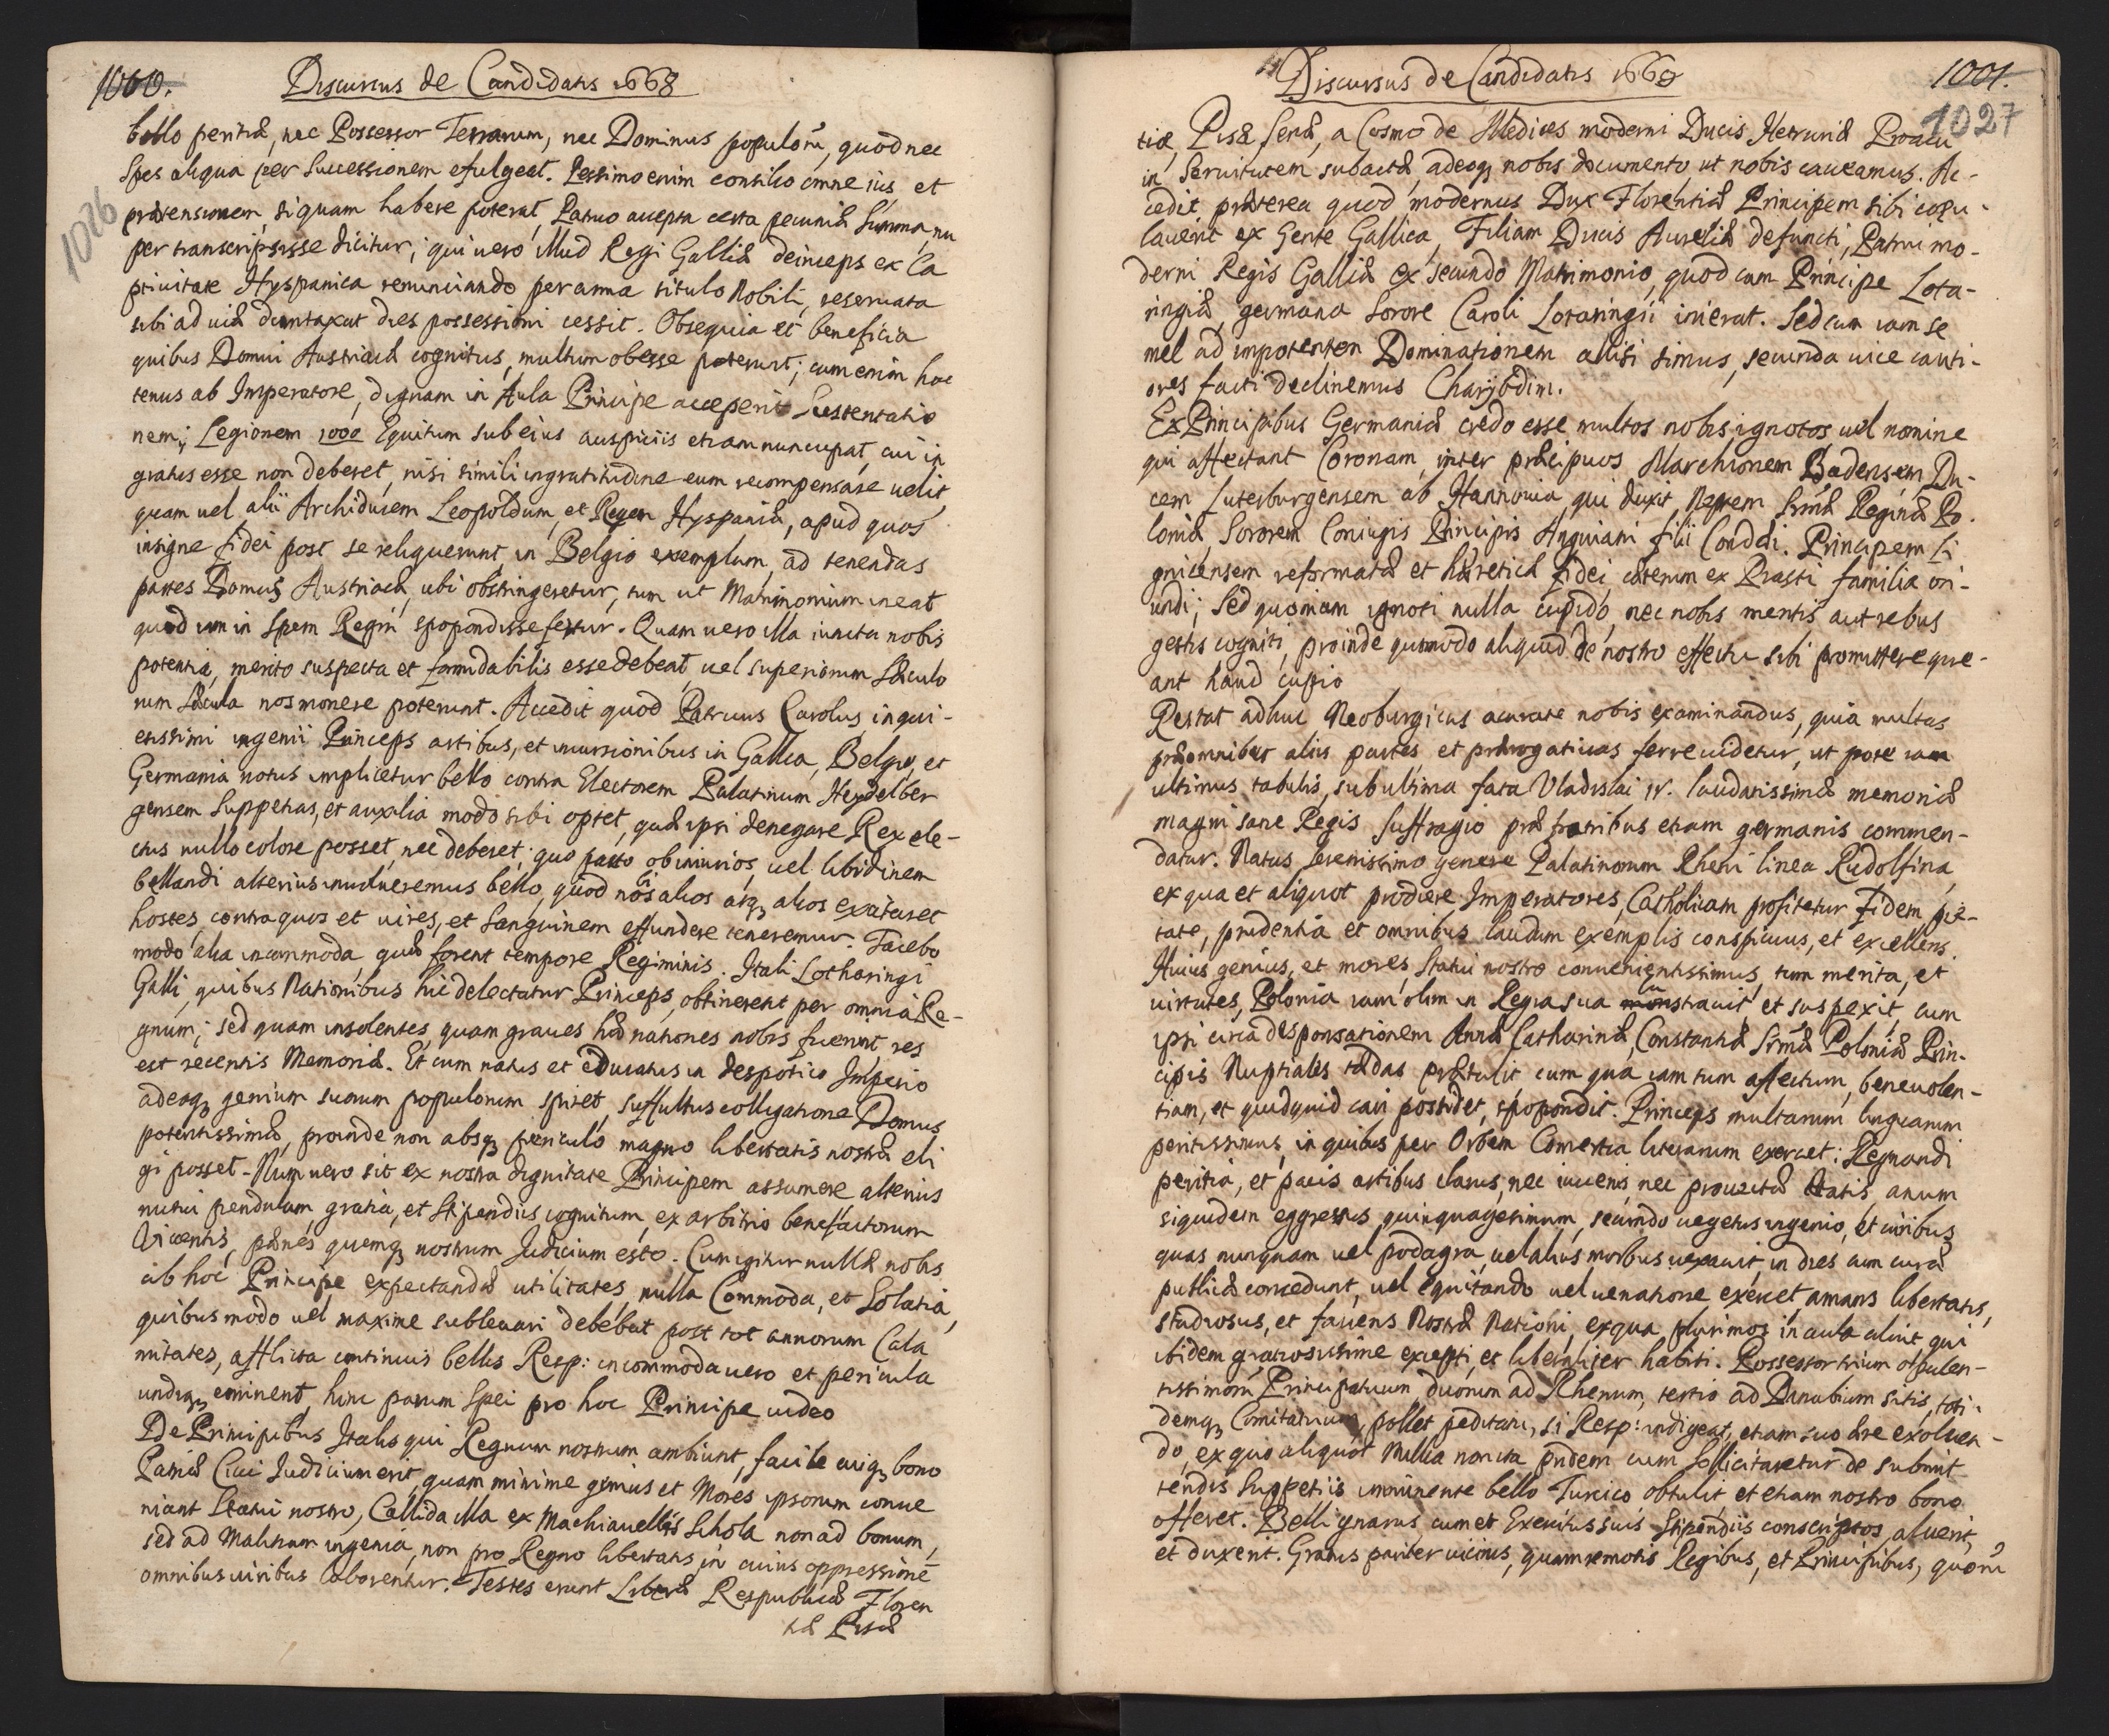 1000.
Discursus de Candidatis 1668
1026
bello peritiæ, nec Possessor Terrarum, nec Dominus populorũ, quod nec
Spes aliqua per Successionem efulgeat. Pessimo enim consilio omne ius et
prætensionem, siquam habere poterat, Patruo accepta certa pecuniæ Summa, nu
per transcripsisse dicitur; qui uero illud Regi Galliæ deinceps ex Ca
ptiuitate Hyspanica renunciando per arma titulo Nobili, reseruata
sibi ad uitæ duntaxat dies possessioni cessit. Obsequia et beneficia
quibus Domui Austriacæ cognitus, multum obesse poterunt; cum enim hac
tenus ab Imperatore, dignam in Aula Principe acceperit Sustentatio
nem; Legionem 1000 Equitum sub eius auspiciis etiamnuncupat, cui in
gratus esse non deberet, nisi simili ingratitudine eum recompensare uelit,
quam uel alii Archiducem Leopoldum, et Regem Hyspaniæ, apud quos
insigne fidei post se reliquerunt in Belgio exemplum, ad tenendas
partes Domus Austriacæ, ubi obstringeretur, tum ut Matrimonium ineat
quod iam in Spem Regni spopondisse fertur. Quam uero illa iuncta nobis
potentia, merito suspecta et formidabilis esse debeat, uel superiorum Sæculo
rum Sæcula nos monere poterunt. Accedit quod Patruus Carolus inqui-
etissimi ingenii Princeps artibus, et incursionibus in Gallia, Belgio, et
Germania notus implicetur bello contra Electorem Palatinum Heydelber
gensem Suppetias, et auxilia modo sibi optet, quæ ipsi denegare Rex ele-
ctus nullo colore posset, nec deberet; quo pacto ob iniurios, uel libidinem
bellandi alterius inuolueremus bello, quod nobis alios atq3 alios excitaret
hostes, contra quos et uires, et Sanguinem effundere teneremur. Tacebo
modo alia incommoda, quæ forent tempore Regiminis. Itali Lotharingi
Galli, quibus Nationibus hic delectatur Princeps, obtinerent per omnia Re-
gnum; sed quam insolentes, quam graues hæ nationes nobis fuerint, res
est recentis Memoriæ. Et cum natus et educatus in despotico Imperio
adeoq3 genium suorum populorum spiret, suffultus colligatione Domus
potentissimæ, proinde non absq3 periculo magno libertatis nostræ eli
gi posset. Num uero sit ex nostra dignitate Principem assumere alterius
nutui pendulum, gratia, et Stipendiis cognitum, ex arbitrio benefactorum
Viuentis, pænes quemq3 nostrum Judicium esto. Cum igitur nullæ nobis
ab hoc Principe expectandæ utilitates, nulla Commoda, et Solatia,
quibus modo uel maxime subleuari debebat post tot annorum Cala
mitates, afflicta continuis bellis Resp: incommoda uero et pericula
undiq3 eminent, hinc parum Spei pro hoc Principe uideo
De Principibus Italis qui Regnum nostrum ambiunt, facile cuiq3 bono
Patriæ Ciui Judicium erit, quam minime genius et Mores ipsorum conue
niant Statui nostro, Callida illa ex Machiauellis Schola non ad bonum,
sed ad Malitiam ingenia, non pro Regno libertatis in cuius oppressione
omnibus uiribus laborentur. Testes erunt Liberæ Respublicæ Floren
tiæ Pisæ
Discursus de Candidatis 1668
1001.
1027
tiæ, Pisæ Senæ, a Cosmo de Medices moderni Ducis Hetruriæ Proauo
in Seruitutem subactæ, adeoq3 nobis documento, ut nobis caueamus. Ac-
cedit præterea quod modernus Dux Florentiæ Principem sibi copu-
lauerit ex Gente Gallica, Filiam Ducis Aureliæ defuncti, Patrui mo-
derni Regis Galliæ ex secundo Matrimonio, quod cum Principe Lota-
ringiæ, germana Sorore Caroli Lotaringii inierat. Sed cum iam se
mel ad impotentem Dominationem allisi simus, secunda uice cauti-
ores facti declinemus Charybdim.
Ex Principibus Germaniæ credo esse multos nobis ignotos uel nomine
qui affectant Coronam, inter præcipuos Marchionem Badensem, Du-
cem Luterburgensem ab Hannouia, qui duxit Neptem Srmæ Reginæ Po-
loniæ, Sororem Coniugis Principis Anguiani filii Condæi. Principem Li
gnicensem reformatæ et hæreticæ fidei, cæterum ex Piasti familia ori-
undi; Sed quoniam ignoti nulla cupido, nec nobis mentis aut rebus
gestis cogniti, proinde quomodo aliquid de nostro effectu sibi promittere que-
ant haud cupio
Restat adhuc Neoburgicus acurate nobis examinandus, quia multas
præ omnibus aliis partes, et prærogatiuas ferre uidetur, ut pote iam
ultimus tabulis, sub ultima fata Vladislai IV. laudatissimæ memoriæ
magni sane Regis Suffragio præ fratribus etiam germanis commen-
datur. Natus Serenissimo genere Palatinorum Rheni linea Rudolfina,
ex qua et aliquot prodiere Imperatores, Catholicam profitetur fidem, pie-
tate, prudentia et omnibus laudum exemplis conspicuus, et excellens.
Huius genius, et mores Statui nostro conuenientissimus, tum merita, et
uirtutes, Polonia iam olim in Regia sua monstrauit et suspexit, cum
ipsi circa desponsationem Annæ Catharinæ, Constantiæ Srmæ Poloniæ Prin-
cipis Nuptiales tædas prætulit, cum qua iam tum affectum, beneuolen-
tiam, et quidquid cari possidet, spopondit. Princeps multarum linguarum
peritissimus, in quibus per Orbem Comertia literarum exercet: Regnandi
peritia, et pacis artibus clarus, nec iuuenis, nec prouectæ ætatis, anum
siquidem eggressus quinquagesimum, secundo uegetus ingenio, et uiribus
quas nunquam uel podagra, uel alius morbus uexauit, in dies cum curæ
publicæ concedunt, uel equitando uel uenatione exercet, amans libertatis,
studiosus, et fauens Nostræ Nationi, ex qua plurimos in aula aluit, qui
ibidem gratiosissime excepti, et liberaliter habiti. Possessor trium opulen-
tissimorũ Principatuum, duorum ad Rhenum, tertio ad Danubium sitis, toti-
demq3 Comitatuum, pollet peditatu, si Resp: indigeat, etiam suo ære exoluen-
do, ex quo aliquot Millia non ita pridem cum Sollicitaretur de submit
tendis Suppetiis imminente bello Turcico obtulit, et etiam nostro bono
offeret. Belli gnarus, cum et Exercitus suis Stipendiis conscriptos aluerit,
et duxerit. Gratus pariter uicinis, quam remotis Regibus, et Principibus, quorũ